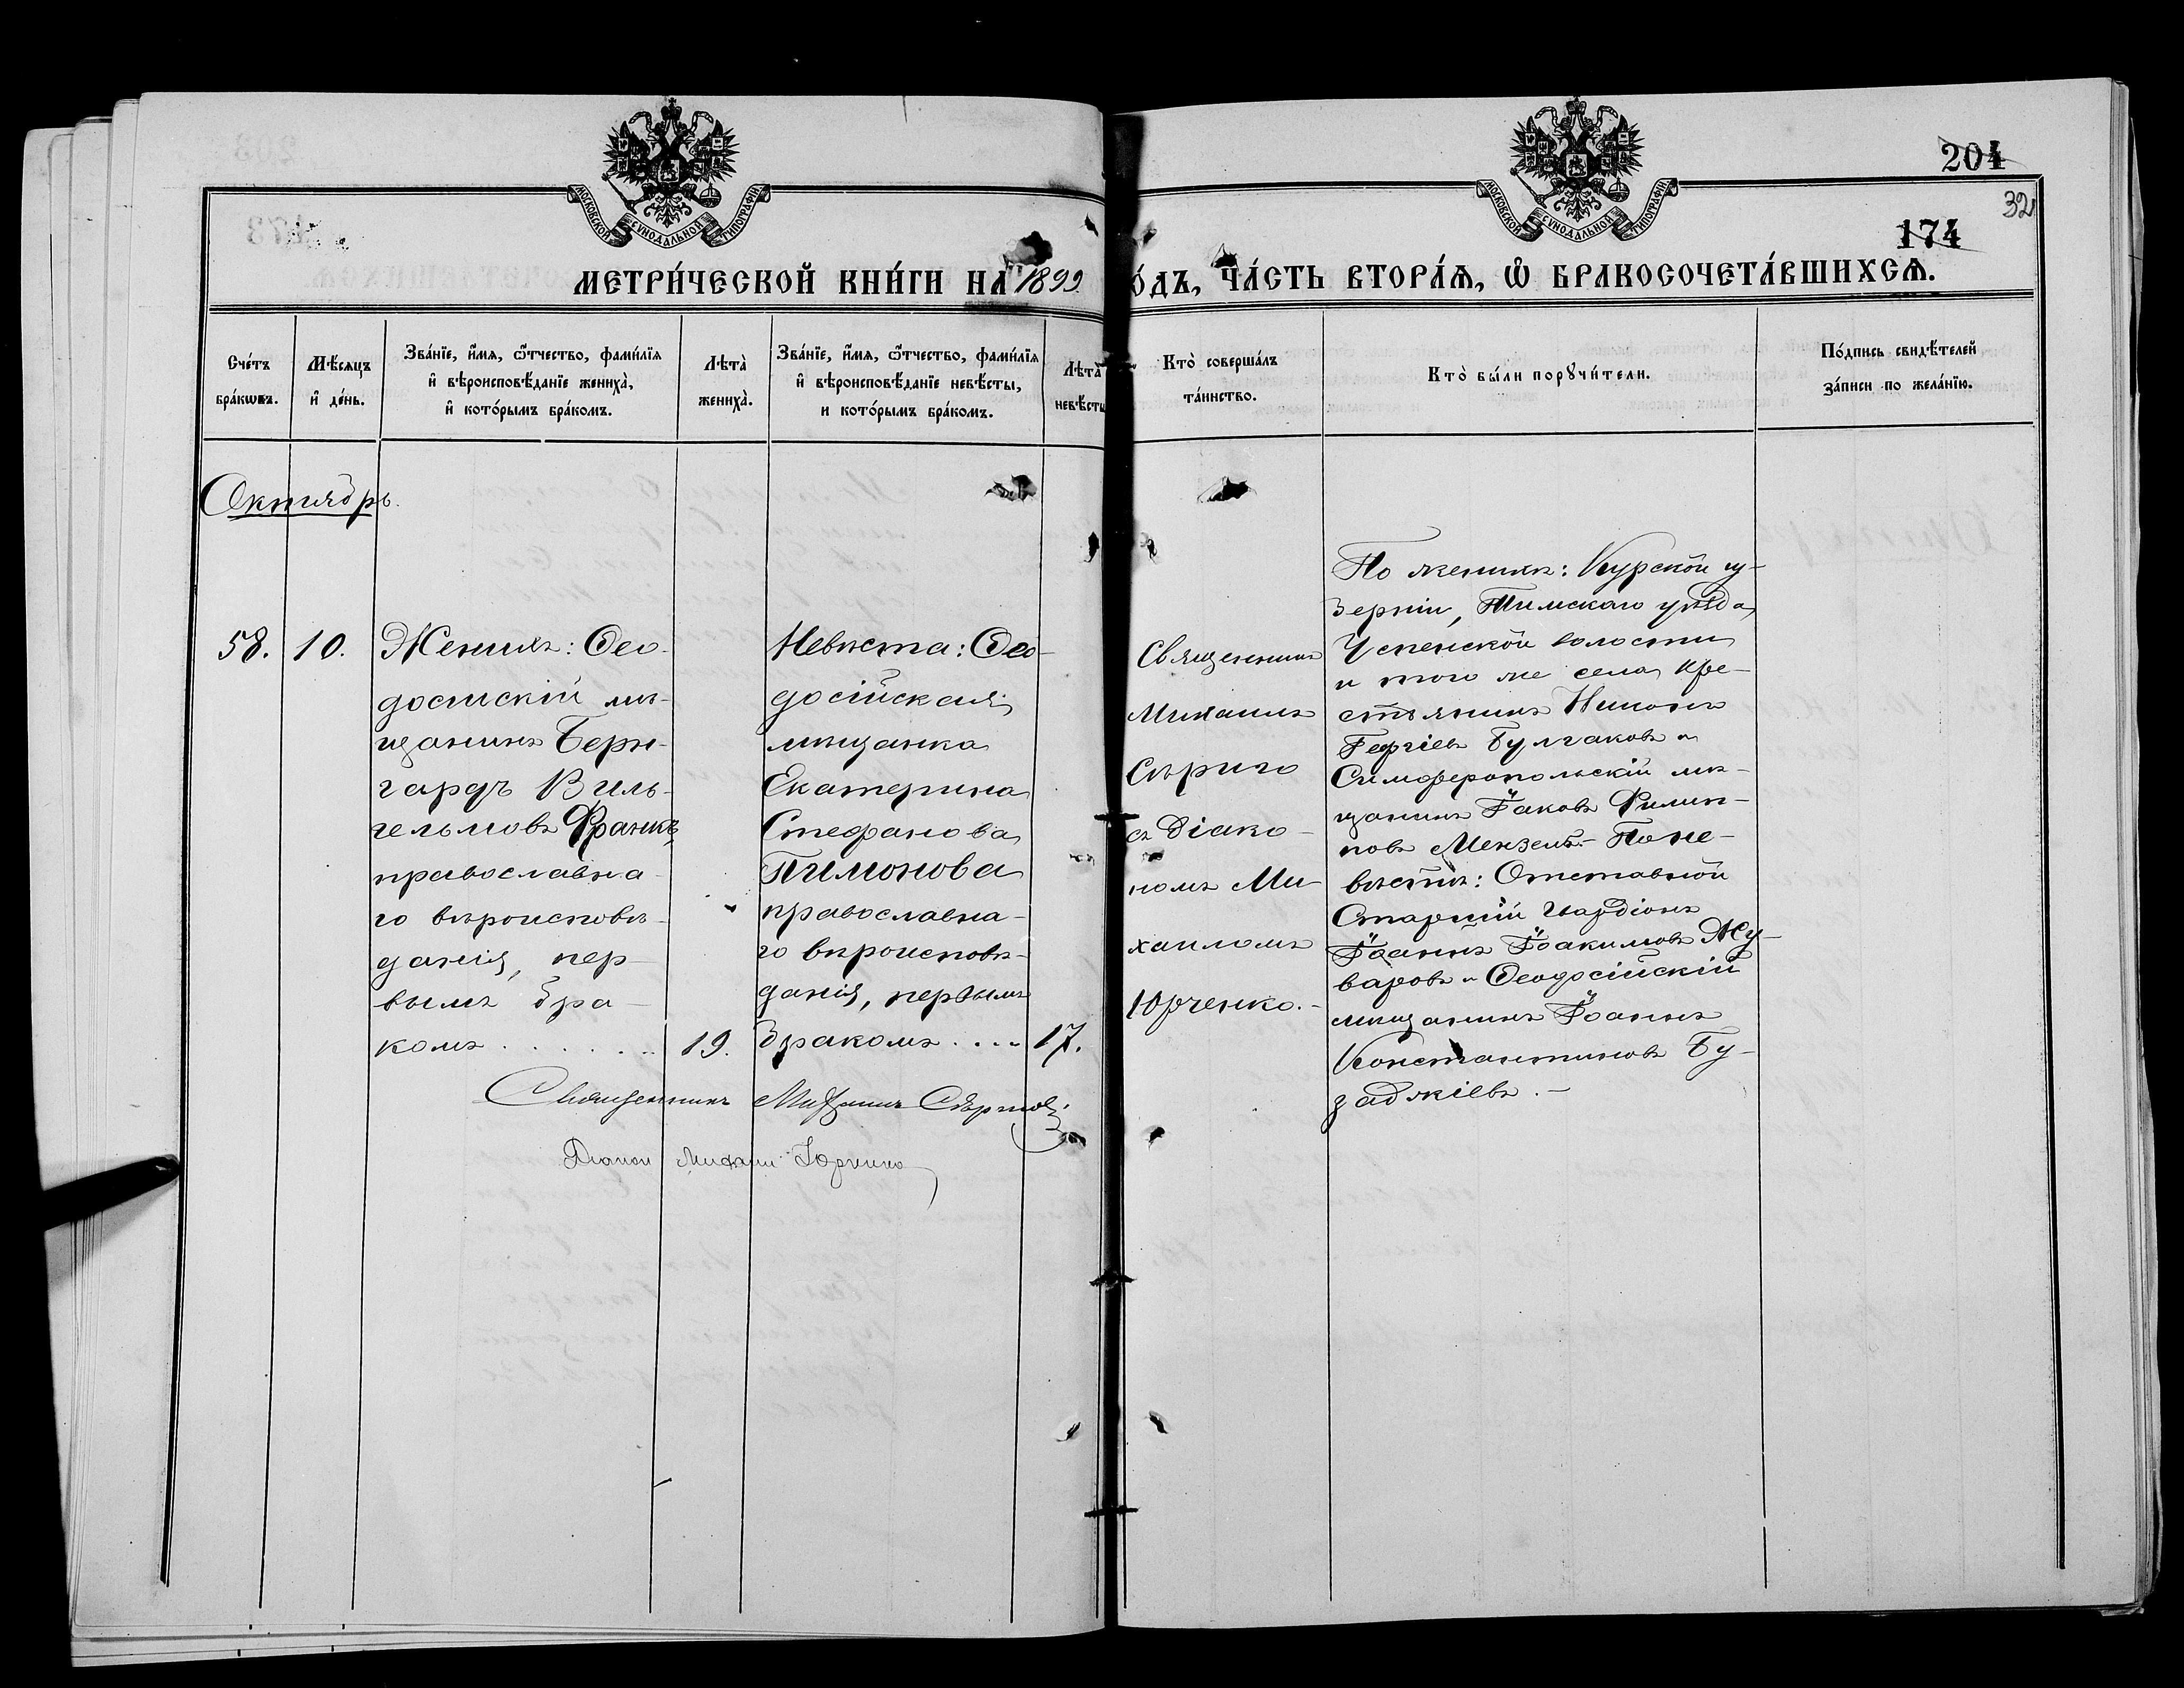 204
32
174
МОСКОВСКОЙ СѴНОДАЛЬНОЙ ТИПОГРАФІИ
МОСКОВСКОЙ СѴНОДАЛЬНОЙ ТИПОГРАФІИ
МЕТРИ́ЧЕСКОЙ КНИ́ГИ НА 1899
О́ДЪ, ЧА́СТЬ ВТОРА́Ѧ, Ѽ БРАКОСОЧЕТА́ВШИХСѦ.
Сче́тъ
бра́кѡвъ.
Мѣ́сѧцъ
и҆ де́нь.
Зва́нїе, и҆́мѧ, ѻ҆́тчество, фами́лїѧ
и҆ вѣроисповѣ́данїе жениха̀,
и҆ кото́рымъ бра́комъ.
Лѣта̀
жениха̀.
Зва́нїе, и҆́мѧ, ѻ҆́тчество, фами́лїѧ
и҆ вѣроисповѣ́данїе невѣ́сты,
и кото́рымъ бра́комъ.
Лѣта̀
невѣ́сты
Кто̀ соверша́лъ
та́инство.
Кто̀ бы́ли порꙋчи́тели.
По́дпись свидѣ́телей
за́писи по жела́нїю.
Октябрь.
58.
10.
Женихъ: Ѳео-
досійскій мѣ-
щанинъ Берн-
гардъ Виль-
гельмовъ Франкъ,
православна-
го вѣроисповѣ-
данія, пер-
вымъ бра-
комъ . . . . . .
19.
Невѣста: Ѳео-
досійская
мѣщанка
Екатерина
Стефанова
Пимонова
православна-
го вѣроисповѣ-
данія, первымъ
бракомъ . . . .
17.
Священникъ
Михаилъ
Сѣриго
съ Діако-
номъ Ми-
хаиломъ
Юрченко.-
По женихѣ: Курской гу-
берніи, Тимскаго уѣзда,
Успенской волости
и того же села, кре-
стьянинъ Никонъ
Георгіевъ Булгаковъ и
Симферопольскій мѣ-
щанинъ Іаковъ Филип-
повъ Мензель.- По не-
вѣстѣ: Отставной
Старшій Гвардіонъ
Іоаннъ Іоакимовъ Жу-
варовъ и Ѳеодосійскій
мѣщанинъ Іоаннъ
Константиновъ Бу-
заджіевъ.-
Священникъ Михаилъ Сѣриго
Діакон Михаил Юрченко